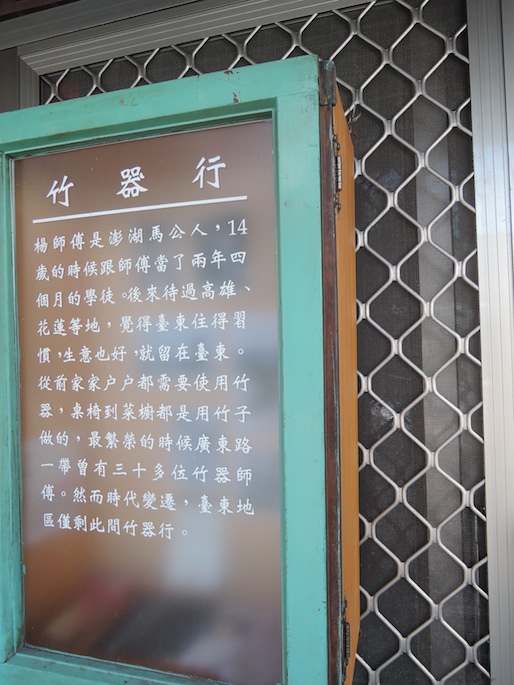 竹器行
楊師傅是澎湖馬公人，14
歲的時候跟師傅當了兩年四
個月的學徒。後來待過高雄、
花蓮等地，覺得臺東住得習
慣，生意也好，就留在臺東。
從前家家户户都需要使用竹
器，桌椅到菜櫥都是用竹子
做的，最繁榮的時候廣東路
一帶曾有三十多位竹器師
傅。然而時代變遷，臺東地
區僅剩此間竹器行。